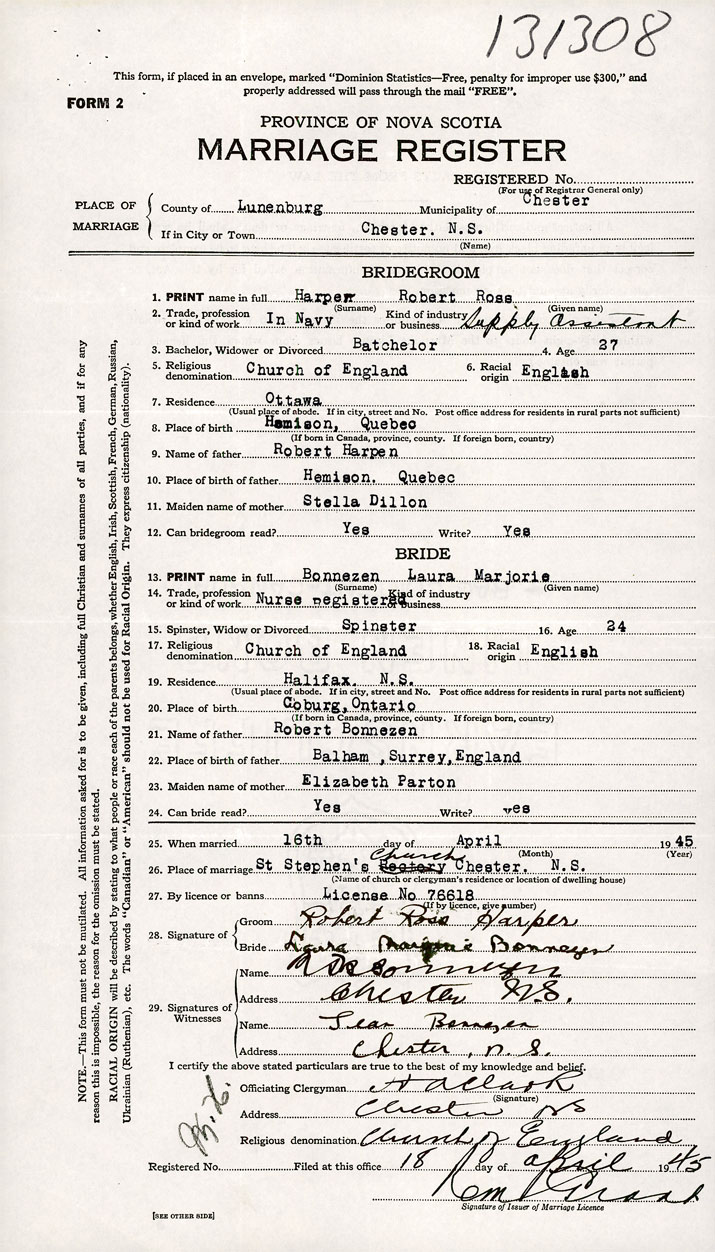 131308
This form, if placed in an envelope, marked “Dominion Statistics—Free, penalty for improper use $300,” and
properly addressed will pass through the mail “FREE”.
FORM 2
PROVINCE OF NOVA SCOTIA
MARRIAGE REGISTER
REGISTERED No.
(For use of Registrar General only)
PLACE OF MARRIAGE
County of Lunenburg Municipality of Chester
If in City or Town Chester. N.S.
(Name)
BRIDEGROOM
1. PRINT name in full Harper Robert Ross
(Surname) (Given name)
2. Trade, profession or kind of work In Navy Kind of industry or business Supply Assistant
3. Bachelor, Widower or Divorced Batchelor 4. Age 27
5. Religious denomination Church of England 6. Racial origin English
7. Residence Ottawa
(Usual place of abode. If in city, street and No. Post office address for residents in rural parts not sufficient)
8. Place of birth Hemison, Quebec
(If born in Canada, province, county. If foreign born, country)
9. Name of father Robert Harpen
10. Place of birth of father Hemison. Quebec
11. Maiden name of mother Stella Dillon
12. Can bridegroom read? Yes Write? Yes
BRIDE
13. PRINT name in full Bonnezen Laura Marjorie
(Surname) (Given name)
14. Trade, profession or kind of work Nurse registered Kind of industry or business
15. Spinster, Widow or Divorced Spinster 16. Age 24
17. Religious denomination Church of England 18. Racial origin English
19. Residence Halifax. N.S.
(Usual place of abode. If in city, street and No. Post office address for residents in rural parts not sufficient)
20. Place of birth Coburg,Ontario
(If born in Canada, province, county. If foreign born, country)
21. Name of father Robert Bonnezen
22. Place of birth of father Balham ,Surrey,England
23. Maiden name of mother Elizabeth Parton
24. Can bride read? Yes Write? yes
25. When married 16th day of April 1945
(Month) (Year)
26. Place of marriage St Stephen's Church Rectory Chester. N.S.
(Name of church or clergyman's residence or location of dwelling house)
27. By licence or banns License No 76618
(If by licence, give number)
28. Signature of
Groom Robert Ross Harper
Bride Laura Marjorie Bonnezen
29. Signatures of Witnesses
Name Bonnezen
Address Chester N.S.
Name Jean Bonnezen
Address Chester, N.S.
I certify the above stated particulars are true to the best of my knowledge and belief.
Officiating Clergyman
(Signature)
Address Chester NS
Religious denomination Church of England
Registered No. Filed at this office 18 day of April 1945
Signature of Issuer of Marriage Licence
[SEE OTHER SIDE]
NOTE.—This form must not be mutilated. All information asked for is to be given, including full Christian and surnames of all parties, and if for any
reason this is impossible, the reason for the omission must be stated.
RACIAL ORIGIN will be described by stating to what people or race each of the parents belongs, whether English, Irish, Scottish, French, German, Russian,
Ukrainian (Ruthenian), etc. The words “Canadian” or “American” should not be used for Racial Origin. They express citizenship (nationality).